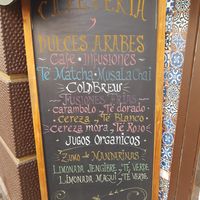 CAFETERIA
Y
DULCES ARABES
CAFE · INFUSIONES
TE MATCHA · MUSALA CHAI
COLDBREW
INFUSIONES FRIAS
CARAMBOLO TÉ DORADO
CEREZA TÉ BLANCO
CEREZA MORA TÉ ROJO
JUGOS ORGANICOS
ZUMO DE MANDARINAS
LIMONADA JENGIBRE TÉ VERDE
LIMONADA MAQUI TÉ VERDE